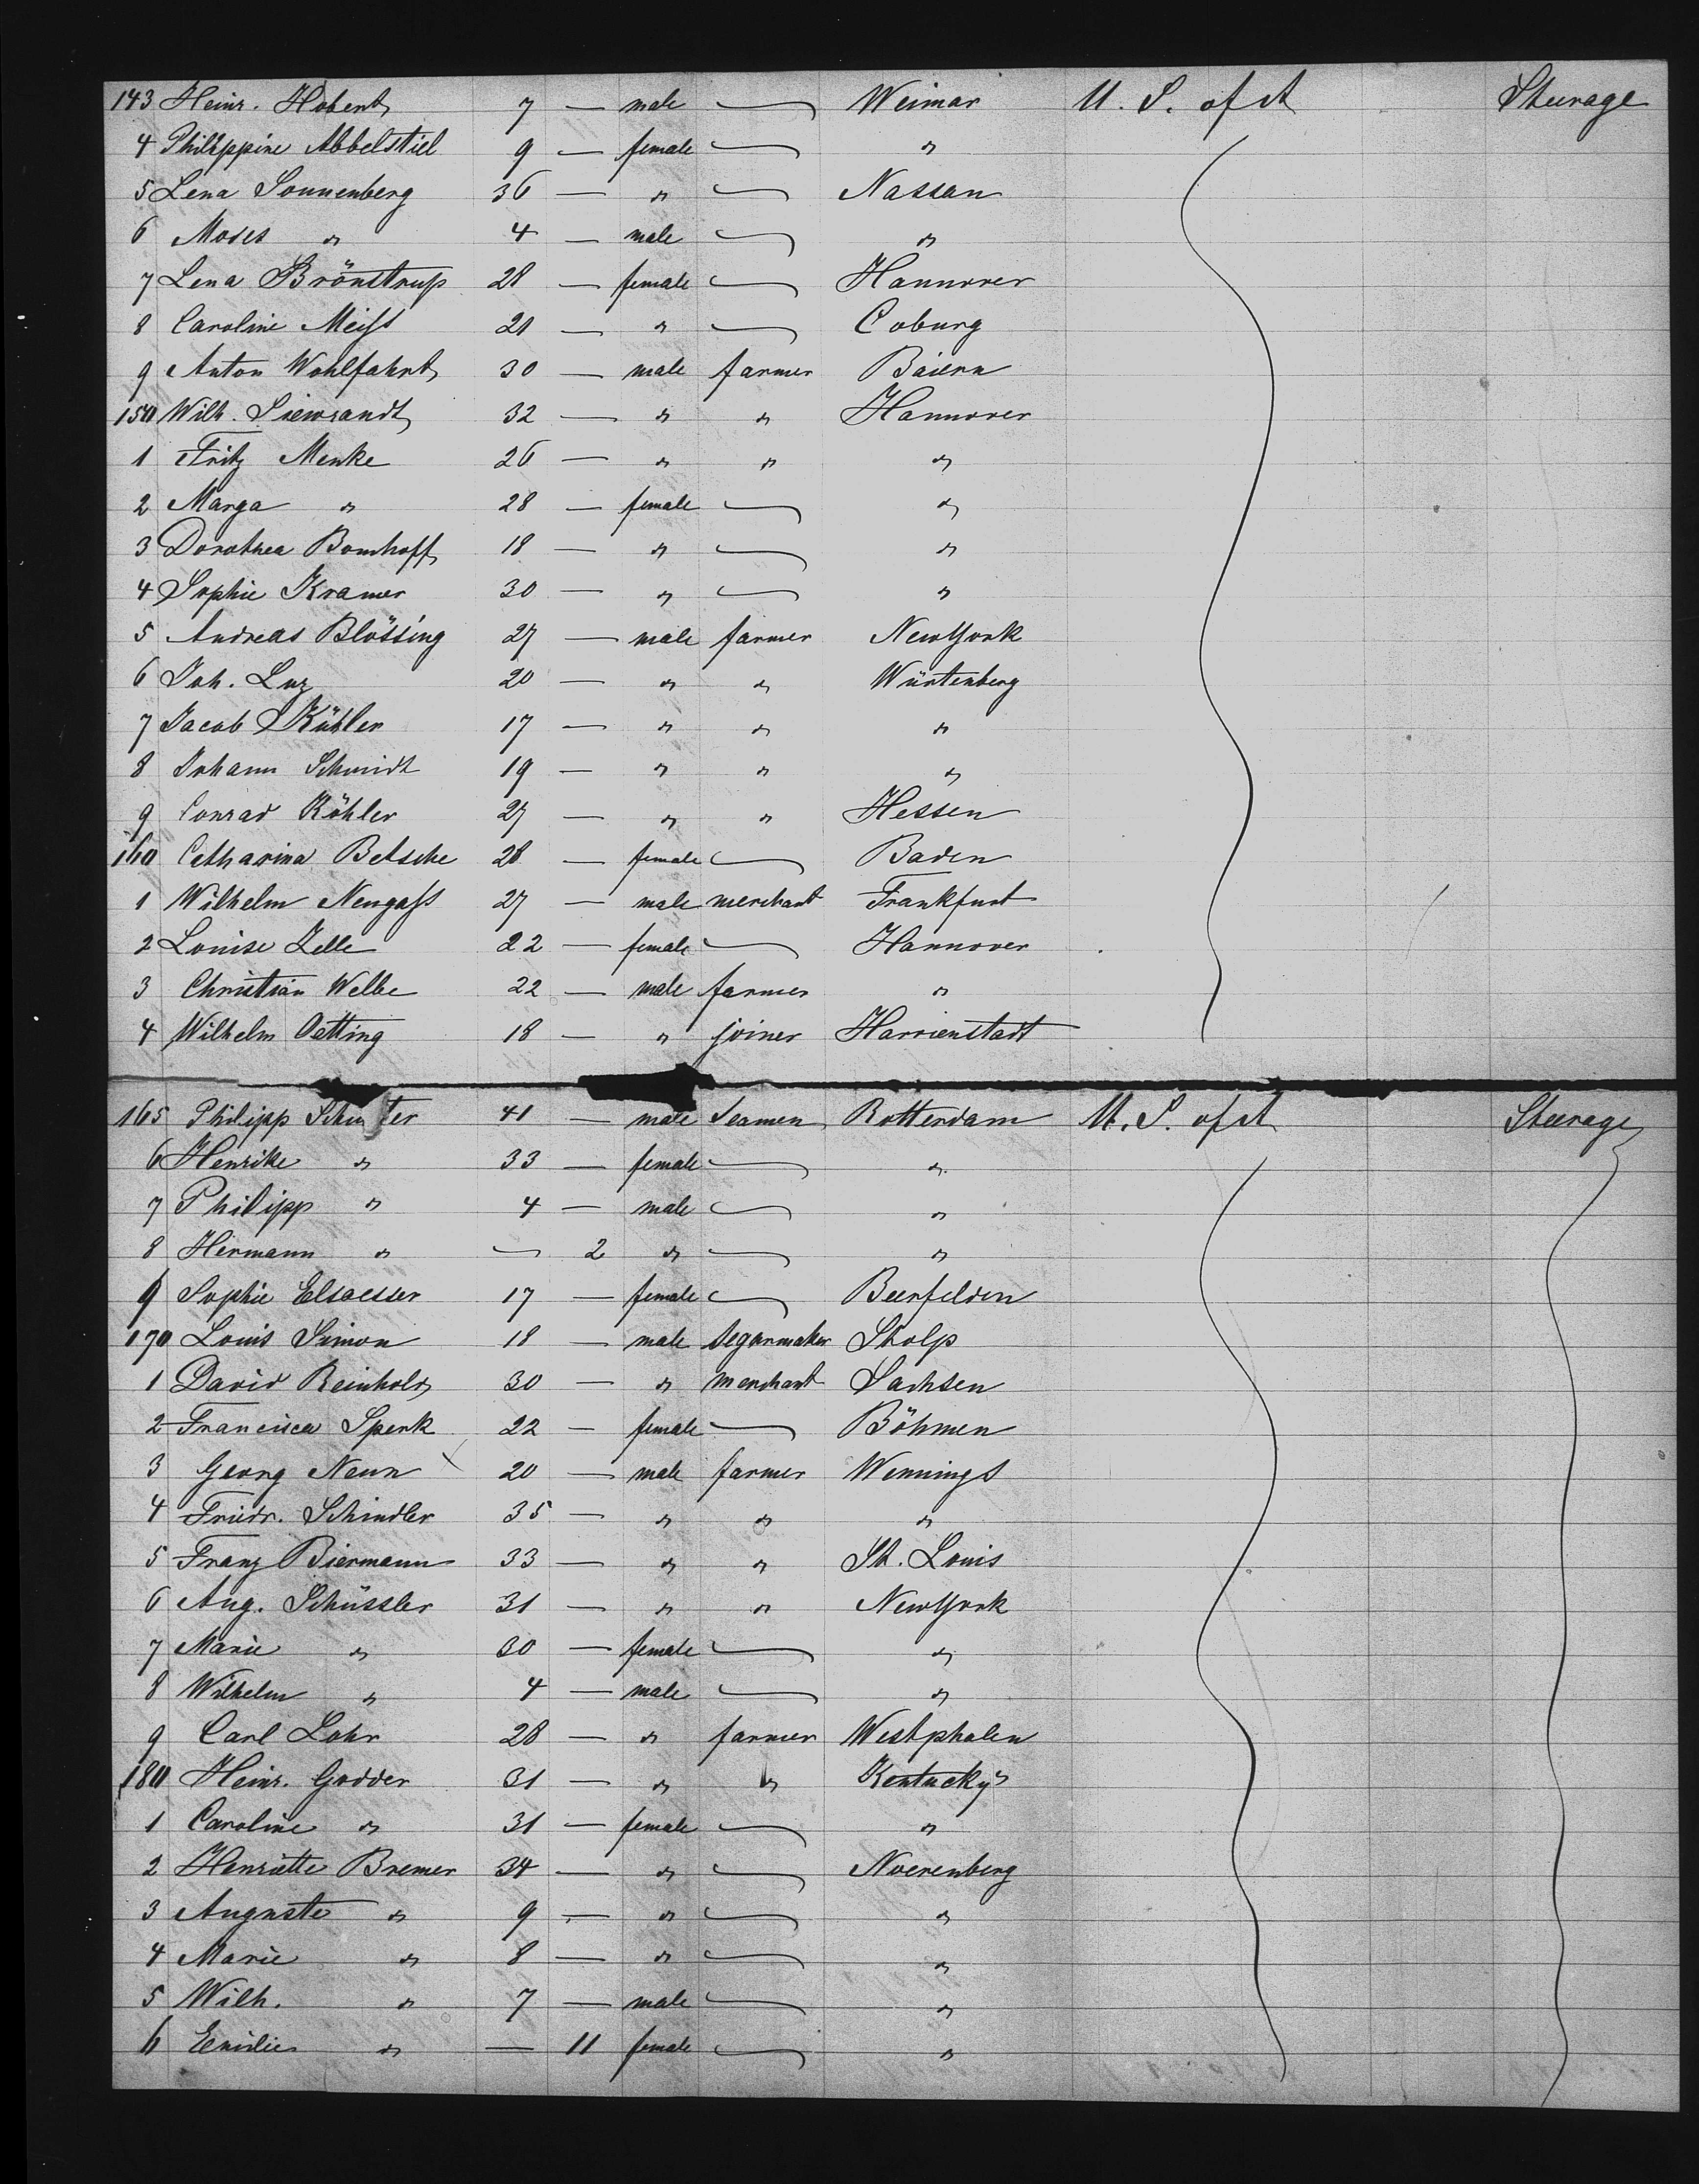 143 Heinr. Hobert 7 — male — Weimar U. S. of A Steerage
4 Philippine Abbelstiel 9 — female — "
5 Lena Sonnenberg 36 — " — Nassau
6 Moses " 4 — male — "
7 Lena Brönstrup 28 — female — Hannover
8 Caroline Meiſs 21 — " — Coburg
9 Anton Wohlfahrt 30 — male farmer Baiern
150 Wilh. Siewrandt 32 — " " Hannover
1 Fritz Menke 26 — " " "
2 Marga " 28 — female — "
3 Dorothea Bomhoff 18 — " — "
4 Sophie Kramer 30 — " — "
5 Andreas Blössing 27 — male farmer NewYork
6 Joh. Luz 20 — " " Würtenberg
7 Jacob Kübler 17 — " " "
8 Johann Schmidt 19 — " " "
9 Conrad Köhler 27 — " " Hessen
160 Catharina Betsche 28 — female — Baden
1 Wilhelm Neugaſs 27 — male merchant Frankfurt
2 Louise Zelle 22 — female — Hannover
3 Christian Welbe 22 — male farmer "
4 Wilhelm Oetting 18 — " joiner Harrienstadt
165 Philipp 41 — male Seamen Rotterdam U. S. of A Steerage
6 Henrike " 33 — female — "
7 Philipp " 4 — male — "
8 Hermann " — 2 " — "
9 Sophie Elsaesser 17 — female — Beerfelden
170 Louis Simon 18 — male Segarmaker Stolp
1 David Reinhold 30 — " merchant Sachsen
2 Francisca Sperk 22 — female — Böhmen
3 Georg Neun 20 — male farmer Wennings
4 Friedr. Schindler 35 — " " "
5 Franz Biermann 33 — " " St. Louis
6 Aug. Schüssler 31 — " " NewYork
7 Marie " 30 — female — "
8 Wilhelm " 4 — male — "
9 Carl Lohr 28 — " farmer Westphalen
180 Heinr. Godder 31 — " " Kentucky
1 Caroline " 31 — female — "
2 Henriette Bremer 34 — " — Noerenberg
3 Auguste " 9 — " — "
4 Marie " 8 — " — "
5 Wilh. " 7 — male — "
6 Emilie " — 11 female — "